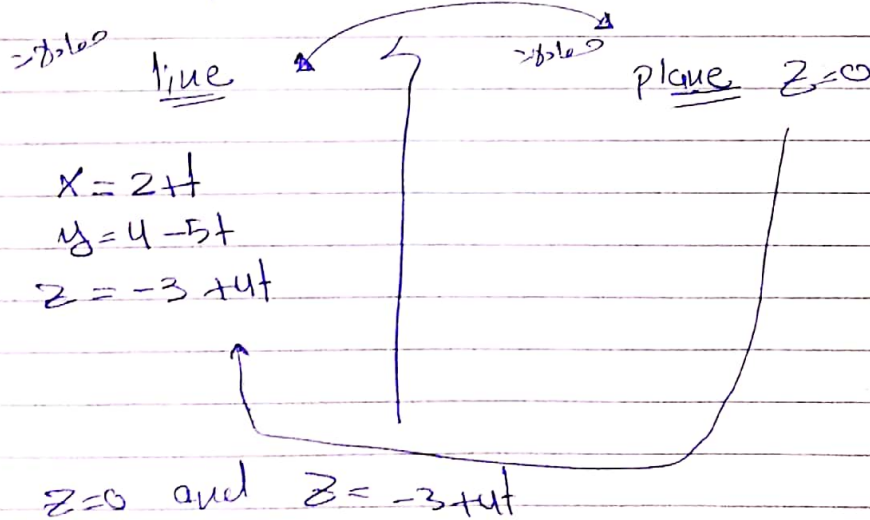 معادلة
line
معادلة
plane z=0
x = 2+t
y = 4 -5t
z = -3 +4t
z=0 and z = -3+4t